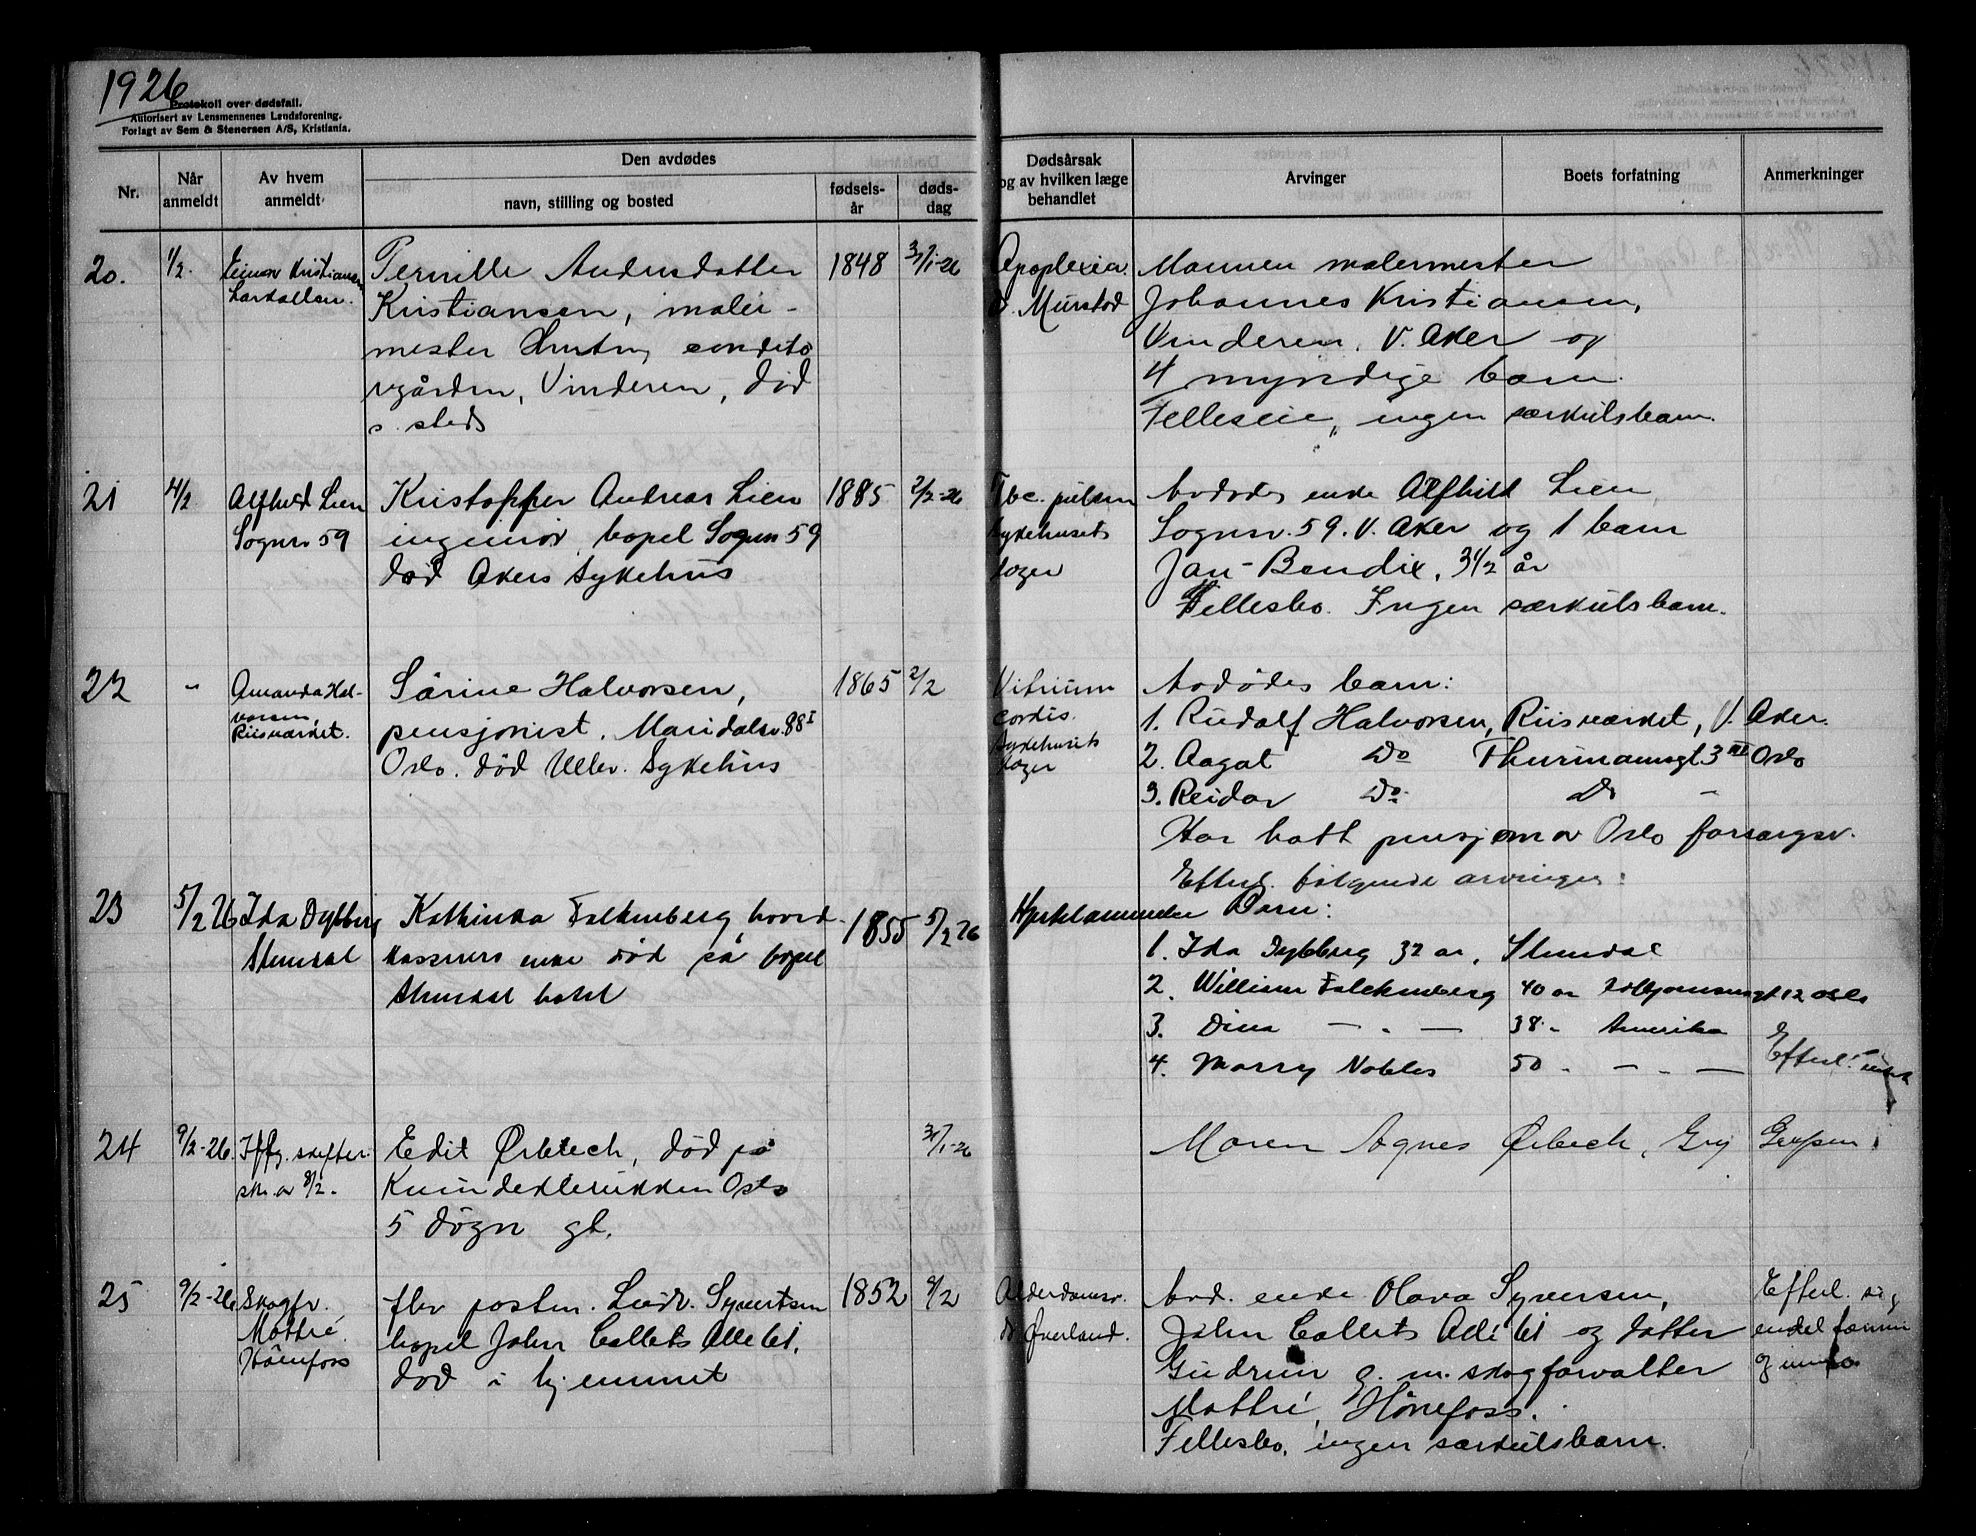 1926
Protokoll over dødsfall.
Autorisert av Lensmennenes Landsforening.
Forlagt av Sem & Stenersen A/S, Kristiania.
Nr.
Når anmeldt
Av hvem anmeldt
Den avdødes
navn, stilling og bosted
fødselsår
dødsdag
Dødsårsak og av hvilken læge behandlet
Arvinger
Boets forfatning
Anmerkninger
20. 1/2. Einar Kristiansen
Larkollen.
Pernille Andersdatter
Kristiansen, maler-
mester
gården, Vinderen, død
s. sted
1848 31/1-26
Apoplexia
d. Murstad
Mannen malermester
Johannes Kristiansen,
Vinderen, V. Aker og
4 myndige barn.
Felleseie, ingen særkulsbarn.
21 4/2 Alfhild Lien
Sognsv 59
Kristoffer Andreas Lien
ingeniør, bopel Sognsv 59
død Akers Sykehus
1885 2/2-26
Tbc. pulm
Sykehusets
læger
Avdødes enke Alfhild Lien
Sognsv. 59. V. Aker og 1 barn
Jan-Bendix, 3 1/2 år
Fellesbo. Ingen særkulsbarn.
22 " Amanda Hal-
vorsen,
Riisværket.
Sårine Halvorsen,
pensjonist, Maridalsv. 88 I
Oslo. død Ullev. Sykehus
1865 2/2
Vitium
cordis.
Sykehusets
læger
Avdødes barn:
1. Rudolf Halvorsen, Riisværket, V. Aker.
2. Aagot Do Thurmannsgt 3 III Oslo
3. Reidar Do. Do "
Har hatt pensjon av Oslo forsørgsv.
Efterl. følgende arvinger:
23 5/2 26 Ida Dybberg
Stensdal
Kathinka Falkenberg, hoved-
kasserers enke død på bopel
hotel
1855 5/2 26
Hjertelammelse
Barn:
1. Ida Dybberg 32 år,
2. William Falckenberg 40 år 12 Oslo
3. Dina — " — 38 " Amerika
4. Marry Nobles 50 " — " —
Efterl. intet
24 9/2-26. Iflg. skifter.
skr. av 8/2.
Edit Ørbech, død på
Kvindeklinikken Oslo
5 døgn gl.
31/1-26
Maren Agnes Ørbech, Gry Grefsen
25 9/2-26 Skogfv.
Mathré.
Hønefoss
fhv postm. Ludv. Syvertsen
bopel John Collets Alle 61,
død i hjemmet
1852 9/2
Alderdomsv.
dr Øverland.
Avd. enke Olava Syversen,
John Collets Allé 61 og datter
Gudrun g. m. skogforvalter
Mathré, Hønefoss.
Fellesbo, ingen særkulsbarn.
Efterl. sig
endel formue
og innbo